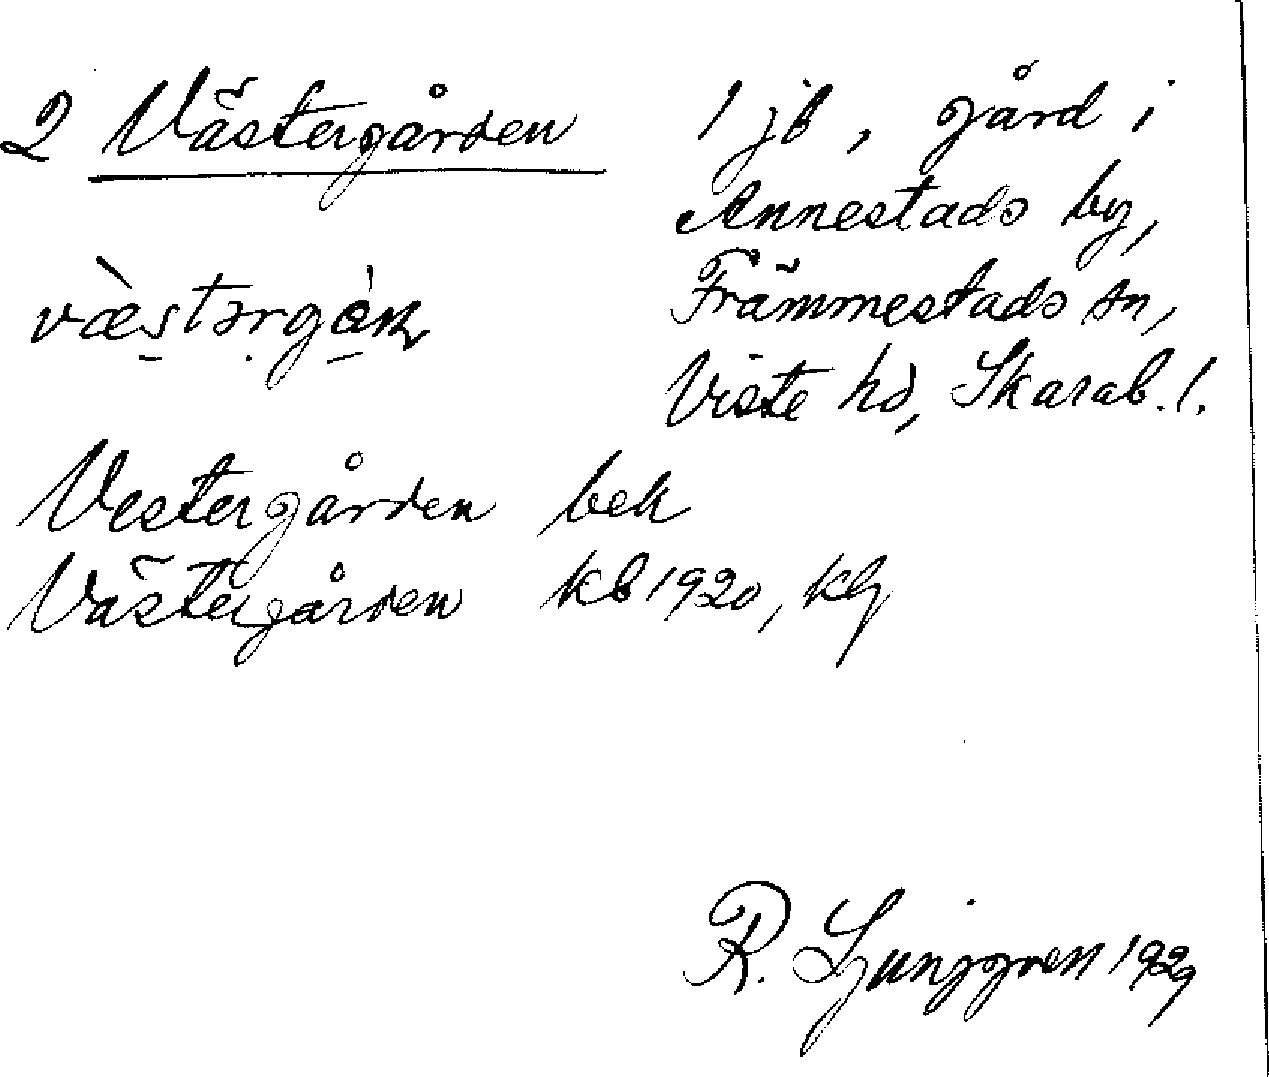 2 Västergården
1 jb, gård i
Annestads by,
Främmestads sn,
Viste hd, Skarab. l.
Vestergården bek
Västergården kb 1920, kg
R. Ljunggren 1929